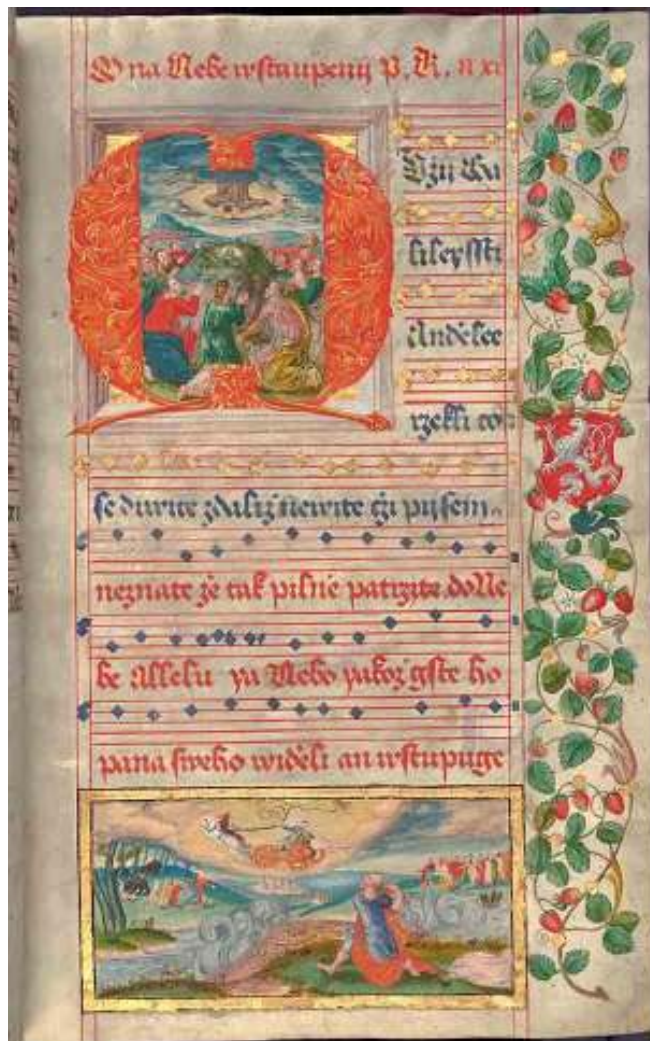 O na Nebe wstaupenij P. K.
Mužij Ga
lileyssti
Anděle
rzekli co
se diwite zdaliž newite čzi pijsem
neznate že tak pilně patrzite do Ne
be Allelu ya Nebo yakož gste ho
pana sweho widěli an wstupuge